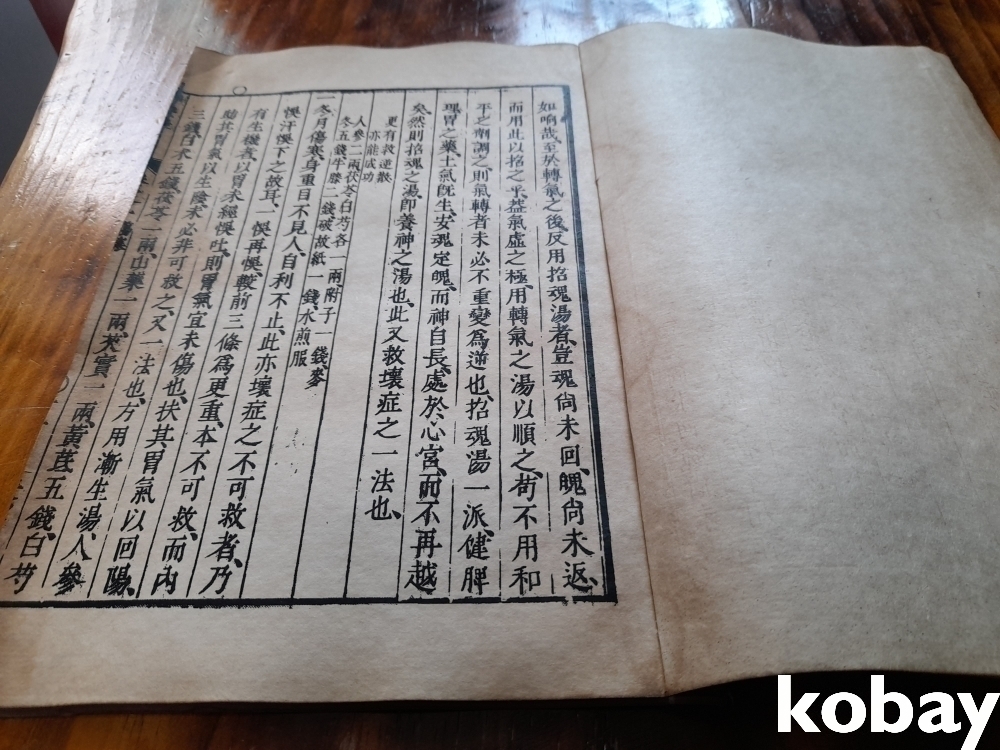 如响哉、至於轉氣之後、反用招魂湯者、豈魂尙未回、魄尙未返、
而用此以招之乎、葢氣虛之極、用轉氣之湯以順之、茍不用和
平之劑調之、則氣轉者未必不重變爲逆也、招魂湯一派、健脾
理胃之藥、土氣旣生、安魂定魄、而神自長處於心宮、而不再越
矣、然則招魂之湯、卽養神之湯也、此又救壞症之一法也、
更有救逆散
亦能成功
人參二兩茯苓白芍各一兩、附子一錢、麥
冬五錢牛膝二錢破故紙一錢、水煎服
一冬月傷寒、身重目不見人、自利不止、此亦壞症之不可救者、乃
悞汗悞下之故耳、一悞再悞、較前三條爲更重、本不可救、而內
有生機者、以胃未經悞吐、則胃氣宜未傷也、扶其胃氣以回陽、
助其胃氣以生陰、未必非可救之又一法也、方用漸生湯、人參
三錢、白朮五錢、茯苓一兩、山藥一兩、芡實一兩、黃芪五錢、白芍
kobay